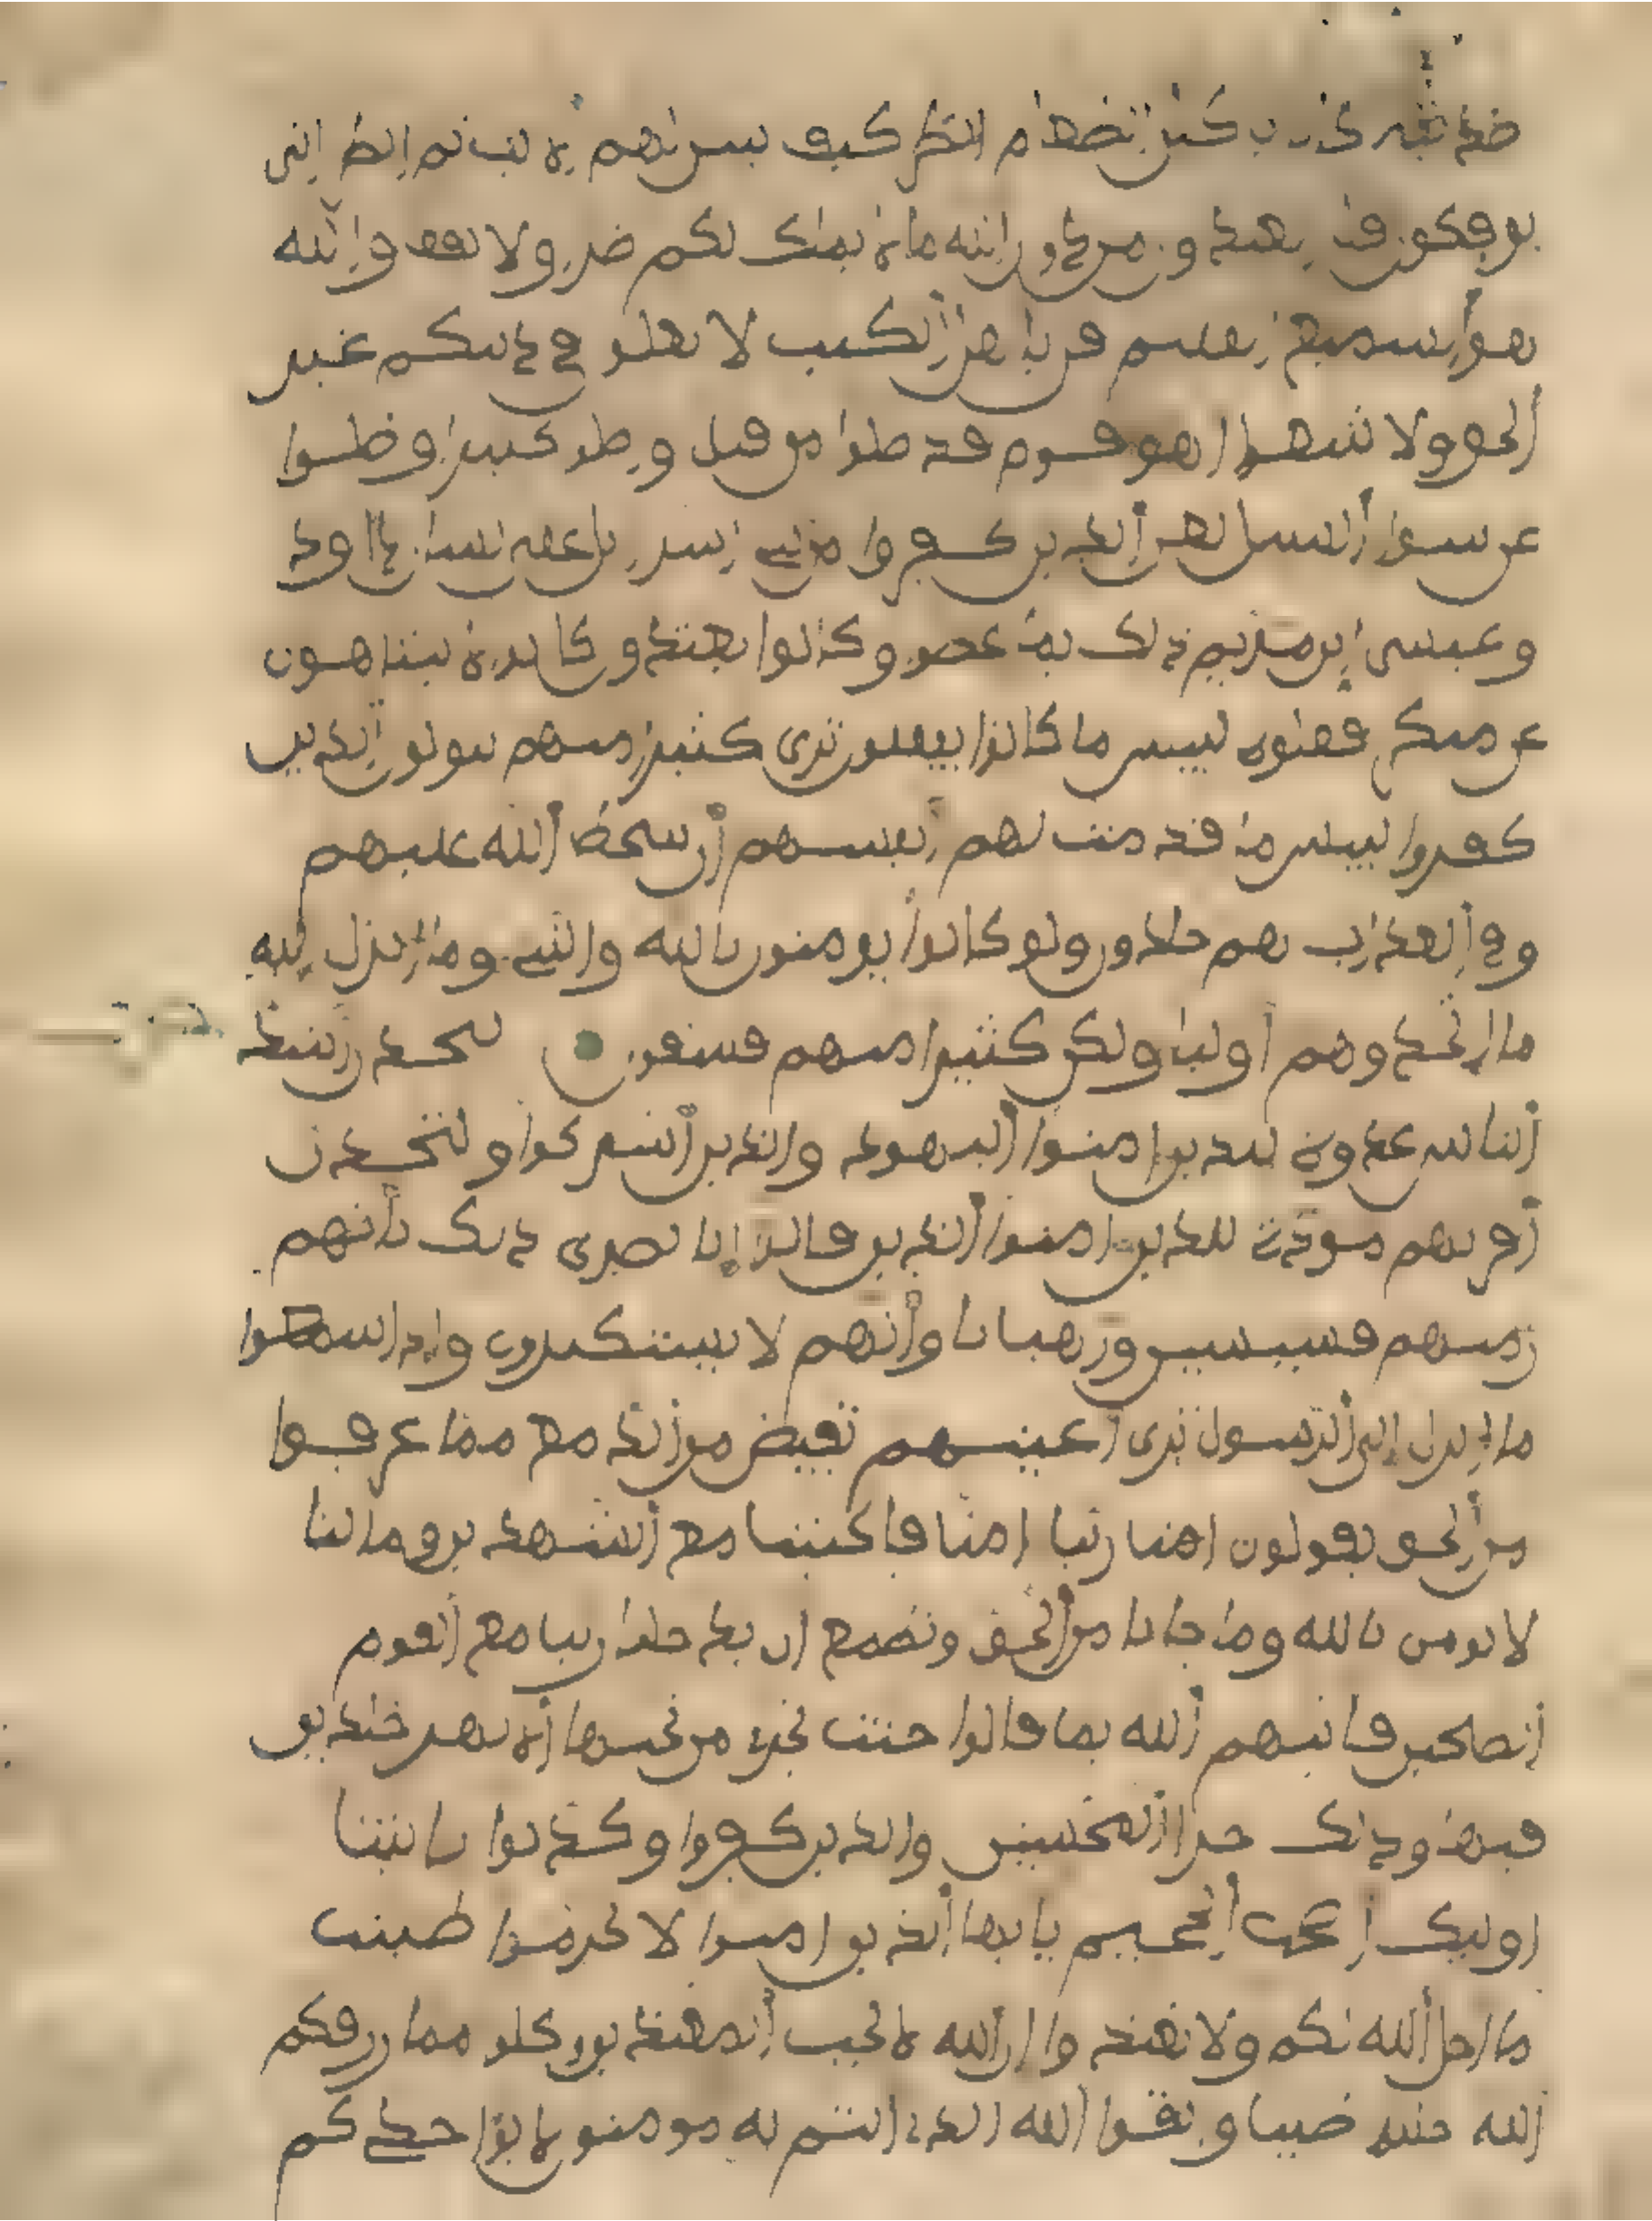 كيف نبين لهم الايت ثم انظر انى
يوفكون قل اتعبدون من دون الله ما لا يملك لكم ضرا ولا نفعا والله
هو السميع العليم قل يا هل الكتب لا تغلوا في دينكم غير
الحق ولا تتبعوا اهوا قوم قد ضلوا من قبل واضلوا كثيرا وضلوا
عن سوا السبيل لعن الذين كفروا من بني اسرايل على لسان داود
وعيسى ابن مريم ذلك بما عصوا وكانوا يعتدون كانوا لا يتناهون
عن منكر فعلوه لبيس ما كانوا يفعلون ترى كثيرا منهم يتولون الذين
كفروا لبيس ما قدمت لهم انفسهم ان سخط الله عليهم
وفي العذاب هم خلدون ولو كانوا يومنون بالله والنبي وما انزل اليه
ما اتخذوهم اوليا ولكن كثيرا منهم فسقون لتجدن اشد
الناس عدوة للذين امنوا اليهود والذين اشركوا ولتجدن
اقربهم مودة للذين امنوا الذين قالوا انا نصرى ذلك بانهم
منهم قسيسين ورهبانا وانهم لا يستكبرون واذا سمعوا
ما انزل الى الرسول ترى اعينهم تفيض من الدمع مما عرفوا
من الحق يقولون امنا ربنا امنا فاكتبنا مع الشهدين وما لنا
لا نومن بالله وما جانا من الحق ونطمع ان يدخلنا ربنا مع القوم
الصلحين فاثبهم الله بما قالوا جنت تجري من تحتها الانهر خلدين
فيها وذلك جزا المحسنين والذين كفروا وكذبوا بايتنا
اوليك اصحب الجحيم يايها الذين امنوا لا تحرموا طيبت
ما احل الله لكم ولا تعتدوا ان الله لا يحب المعتدين وكلوا مما رزقكم
الله حللا طيبا واتقوا الله الذي انتم به مومنون لا يواخذكم